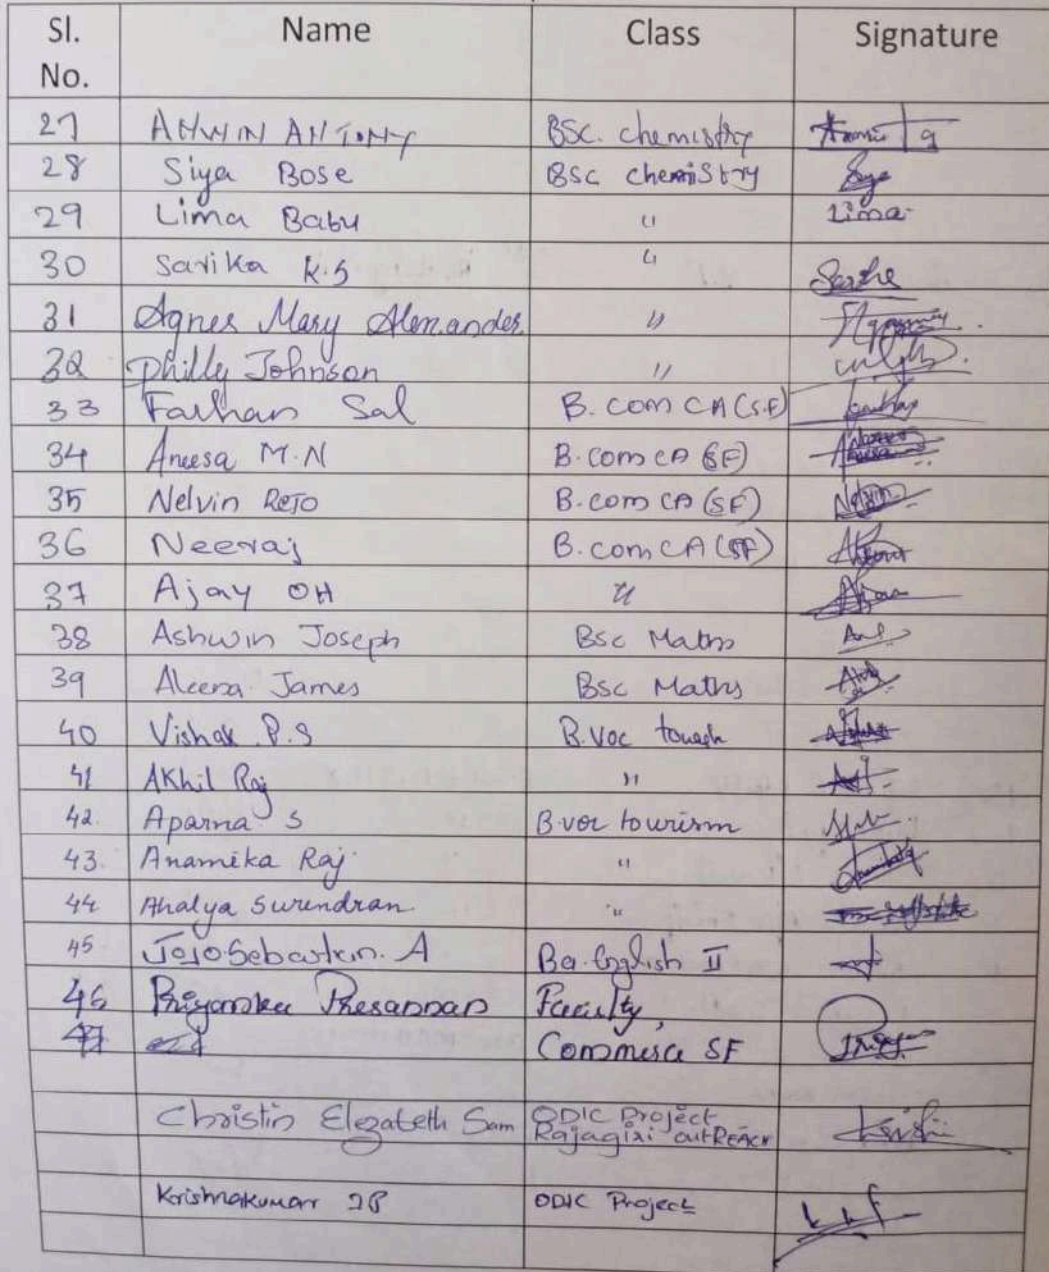 Sl. No. Name Class Signature
27 ANWIN ANTONY BSC. chemistry
28 Siya Bose BSc chemistry
29 Lima Babu " Lima
30 Sarika K.S "
31 Agnes Mary Alexander "
32 Philly Johnson "
33 Farhan Sal B.com CA (S.F)
34 Aneesa M.N B.com CA (SF)
35 Nelvin Rejo B.com CA (SF) Nelvin
36 Neeraj B.com CA (SF)
37 Ajay OH "
38 Ashwin Joseph Bsc Maths
39 Aleena James Bsc Maths
40 Vishak P.S B.Voc
41 Akhil Raj "
42. Aparna S B.voc tourism
43. Anamika Raj "
44 Ahalya Surendran "
45 Jojo Sebastin. A Ba. English II
46 Priyanka Presannan Faculty,
47 Commerce SF
Christin Elezabeth Sam ODIC Project
Rajagiri outREACH
Krishnakumar ODIC Project